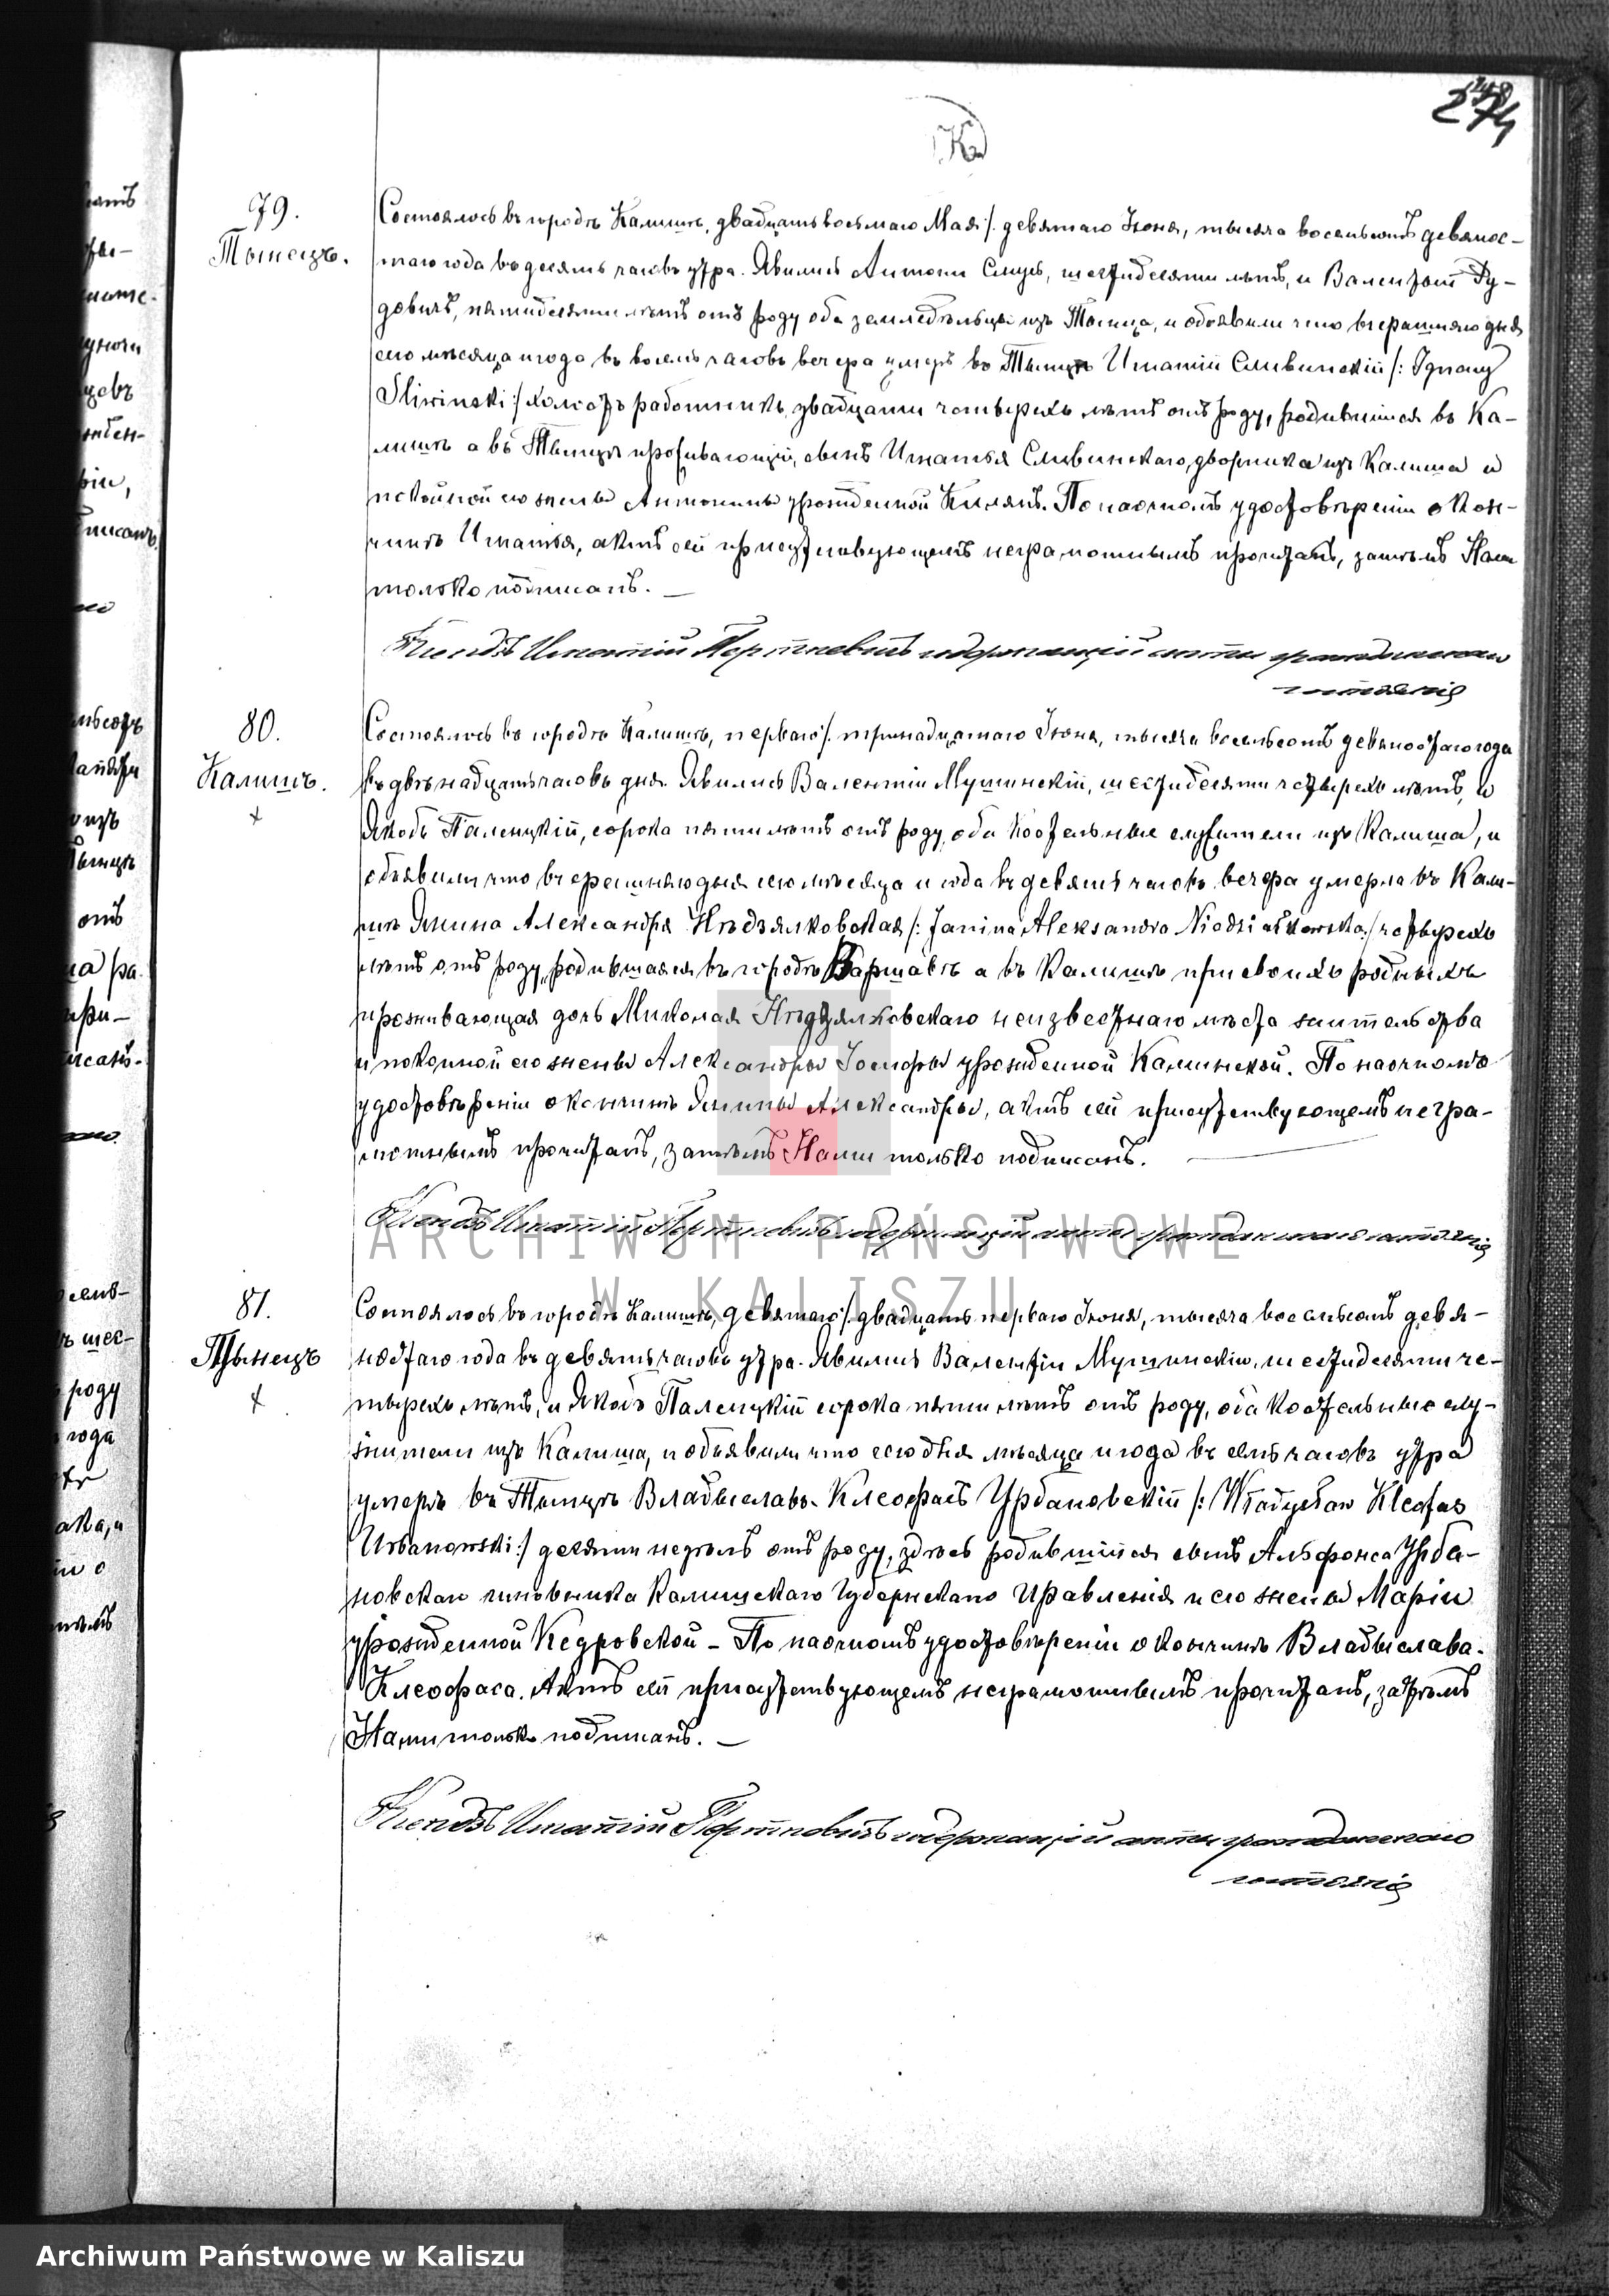 274
К
79.
Тынецъ.
Состоялось въ городѣ Калишѣ, двадцать восьмаго Мая /. девятаго Іюня, тысяча восемьсотъ девянос-
таго года въ десять часовъ утра. Явились Антони, шестидесяти лѣтъ, и Валентій Ду-
довичъ, пятидесяти лѣтъ отъ роду оба земледѣльцы изъ Тынца, и объявили что вчерашняго дня
сего мѣсяца и года въ восемь часовъ вечера умеръ въ Тынцѣ Игнатій Сливинскій /: Ignacy
Sliwinski :/ холостъ работникъ, двадцати четырехъ лѣтъ отъ роду, родившійся въ Ка-
лишѣ а въ Тынцѣ проживающій, сынъ Игнатья Сливинскаго, дворника изъ Калиша и
покойной его жены Антонины урожденной. По наочномъ удостовѣреніи о кон-
чинѣ Игнатья, актъ сей присутствующемъ неграмотнымъ прочитанъ, затѣмъ Нами
только подписанъ. —
Ксендзъ Игнатій содержащій акты гражданскаго
состоянія
80.
Калишъ.
+
Состоялось въ городѣ Калишѣ, перваго /. тринадцатаго Іюня, тысяча восемьсотъ девяностаго года
въ двѣнадцать часовъ дня. Явились Валентій Мушинскій, шестидесяти четырехъ лѣтъ, и
Якобъ Паленцкій, сорока пяти лѣтъ отъ роду, оба костельные служители изъ Калиша, и
объявили что вчерашняго дня сего мѣсяца и года въ девять часовъ вечера умерла въ Кали-
шѣ Янина Александра Нѣдзялковская /: Janina Aleksandra Niedziałkowska :/ четырехъ
лѣтъ отъ роду, родившаяся въ городѣ Варшавѣ а въ Калишѣ при своихъ родныхъ
проживающая дочь Миколая Нѣдзялковскаго неизвестнаго мѣста жительства
и покойной его жены Александры Іозефы урожденной Калинской. По наочномъ
удостовѣреніи о кончинѣ Янины Александры, актъ сей присутствующемъ негра-
мотнымъ прочитанъ, затѣмъ Нами только подписанъ.
Ксендзъ Игнатій содержащій акты гражданскаго состоянія
ARCHIWUM PAŃSTWOWE
W KALISZU
81.
Тынецъ
+
Состоялось въ городѣ Калишѣ, девятаго /. двадцать перваго Іюня, тысяча восемьсотъ девя-
ностаго года въ девять часовъ утра. Явились Валентій Мушинскій, шестидесяти че-
тырехъ лѣтъ, и Якобъ Паленцкій сорока пяти лѣтъ отъ роду, оба костельные слу-
жители изъ Калиша, и объявили что сего дня мѣсяца и года въ семь часовъ утра
умеръ въ Тынцѣ Владыславъ-Клеофасъ Урбановскій /: Władysław Kleofas
Urbanowski :/ десяти недѣль отъ роду, здѣсь родившійся сынъ Альфонса Урба-
новскаго чиновника Калишскаго Губернскаго Правленія и его жены Маріи
урожденной Кедровской — По наочномъ удостовѣреніи о кончинѣ Владыслава-
Клеофаса. Актъ сей присутствующемъ неграмотнымъ прочитанъ, затѣмъ
Нами только подписанъ. —
Ксендзъ Игнатій содержащій акты гражданскаго
состоянія
Archiwum Państwowe w Kaliszu